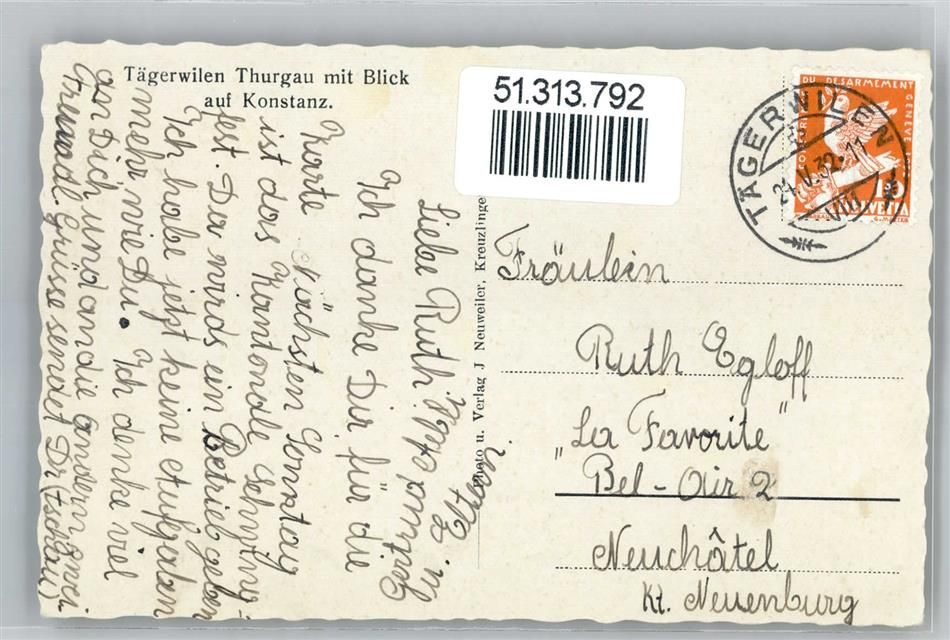 Tägerwilen Thurgau mit Blick
auf Konstanz.
51.313.792
DU DESARMEMENT
GENÈVE
HELVETIA
TÄGERWILEN
24.V.32.11
VIII
Photo u. Verlag J Neuweiler, Kreuzlingen
Fräulein
Ruth Egloff
"La Favorite"
Bel-Air 2
Neuchâtel
Kt. Neuenburg
Liebe Ruth!
Ich danke Dir für die
Karte Nächsten Sonntag
ist das Kantonale Schwing-
fest. Da wirds ein Betrieb geben
Ich habe jetzt keine Aufgaben
mehr wie Du. Ich denke viel
an Dich und an die andern zwei.
Gertrud